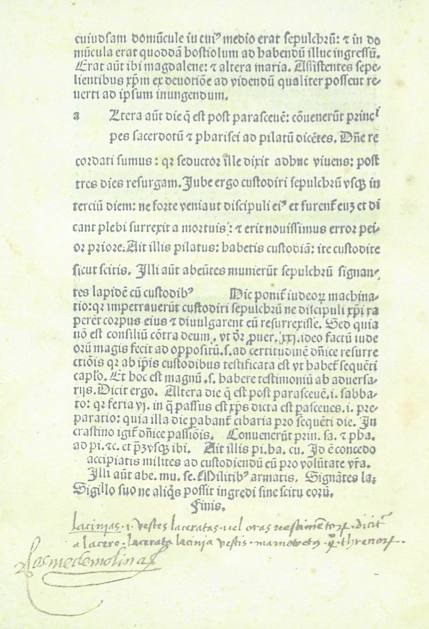 cuiusdam domūcule in cui⁹ medio erat sepulchrū: ⁊ in do
mūcula erat quoddā hostiolum ad habendū illuc ingressū.
Erat aūt ibi magdalene: ⁊ altera maria. Assistentes sepe-
lientibus xp̄m ex deuotiōe ad videndū qualiter possent re-
uerti ad ipsum inungendum.
a Ltera aūt die q̄ est post parasceuē: cōuenerūt princ
pes sacerdotū ⁊ pharisei ad pilatū dicētes. Dn̄e re
cordati sumus: qr seductor ille dixit adhuc viuens: post
tres dies resurgam. Jube ergo custodiri sepulchrū vsq̄ in
terciū diem: ne forte veniaut discipuli ei⁹ et furent̄ euz et di
cant plebi surrexit a mortuis: ⁊ erit nouissimus error pei-
or priore. Ait illis pilatus: habetis custodiā: ite custodite
sicut scitis. Illi aūt abeūtes munierūt sepulchrū signan-
tes lapidē cū custodib⁹ Hic ponit̄ iudeoꝝ machina-
tio: qr impetrauerūt custodiri sepulchrū ne discipuli xp̄i ra
perēt corpus eius ⁊ diuulgarent eū resurrexisse. Sed quia
nō est consiliū cōtra deum, vt dr̄ prouer. xxj. ideo factū iude
orū magis fecit ad oppositū. s. ad certitudinē dn̄ice resurre
ctiōis qr ab ip̄is custodibus testificata est vt habet̄ sequēti
cap̄lo. Et hoc est magnū. s. habere testimoniū ab aduersa-
rijs. Dicit ergo. Altera die q̄ est post parasceuē. i. sabba-
to: qr feria vj. in qua passus est xp̄s dicta est pasceues. i. pre-
paratio: quia illa die p̄abant̄ cibaria pro sequēti die. In
crastino igit̄ dn̄ice passiōis. Conuenerūt prin. sa. ⁊ pha.
ad pi. ⁊c. et p̄ꝫ vsqꝫ ibi. Ait illis pi. ha. cu. Id ē concedo
accipiatis milites ad custodiendū eū pro volūtate vr̄a.
Illi aūt abe. mu. se. Militib⁹ armatis. Signātes la.
Sigillo suo ne aliq̄s possit ingredi sine scitu eorū.
Finis.
Lacinias .i. vestes laceratas vel oras vestimentoꝝ. dicit̄
a lacero. lacerata lacinia vestis